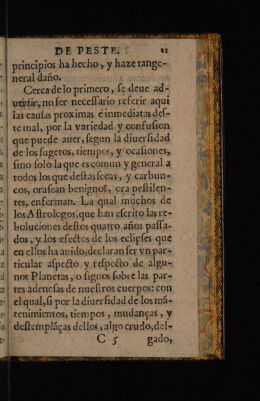 DE PESTE. 21
principios ha hecho, y haze tan ge-
neral daño.
Cerca de lo primero, se deue ad-
uertir, no ser necessario referir aqui
las causas proximas e inmediatas des-
te mal, por la variedad y confusion
que puede auer, segun la diuersidad
de los sugetos, tiempos, y ocasiones,
sino solo la que es comun y general a
todos los que destas secas, y carbun-
cos, ora sean benignos, ora pestilen-
tes, enferman. La qual muchos de
los Astrologos, que han escrito las re-
boluciones destos quatro años passa-
dos, y los efectos de los eclipses que
en ellos ha auido, declaran ser vn par-
ticular aspecto y respecto de algu-
nos Planetas, o signos sobre las par-
tes adensas de nuestros cuerpos: con
el qual, si por la diuersidad de los mã-
tenimientos, tiempos, mudanças, y
destemplãças dellos, algo crudo, del-
C 5 gado,